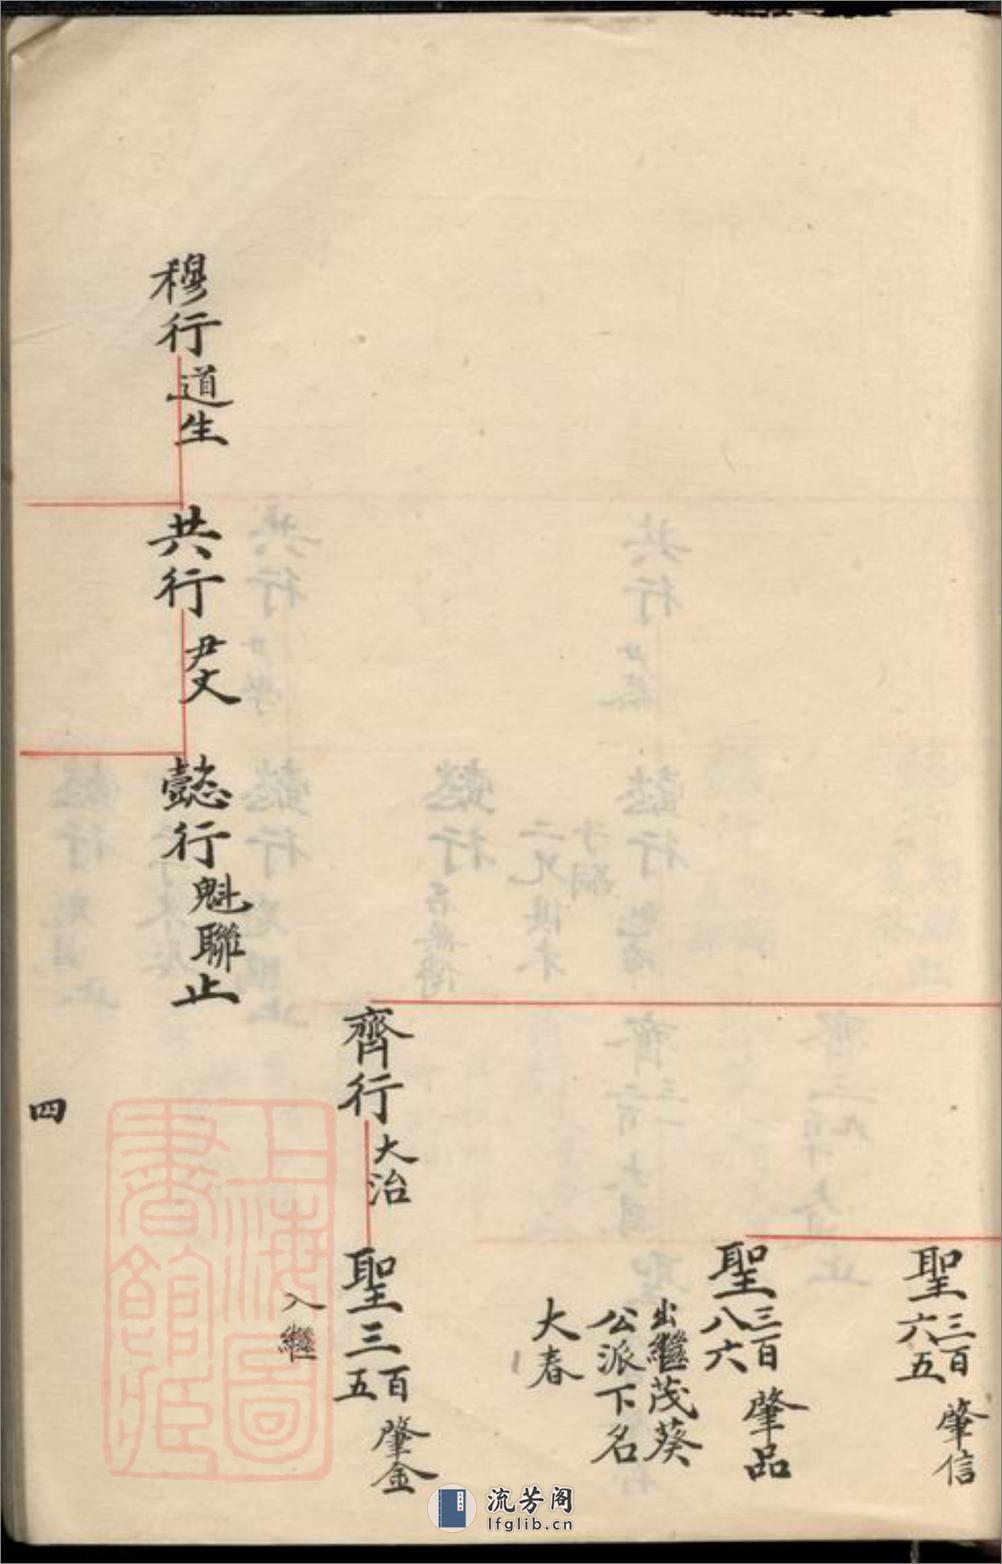 聖三百六五 肇信
聖三百八六 肇品
出繼茂葵
公派下名
大春
齊行大治
聖三百五 肇金
入繼
穆行道生
共行尹文
懿行魁聯止
四
上海圖書館藏
流芳阁
lfglib.cn